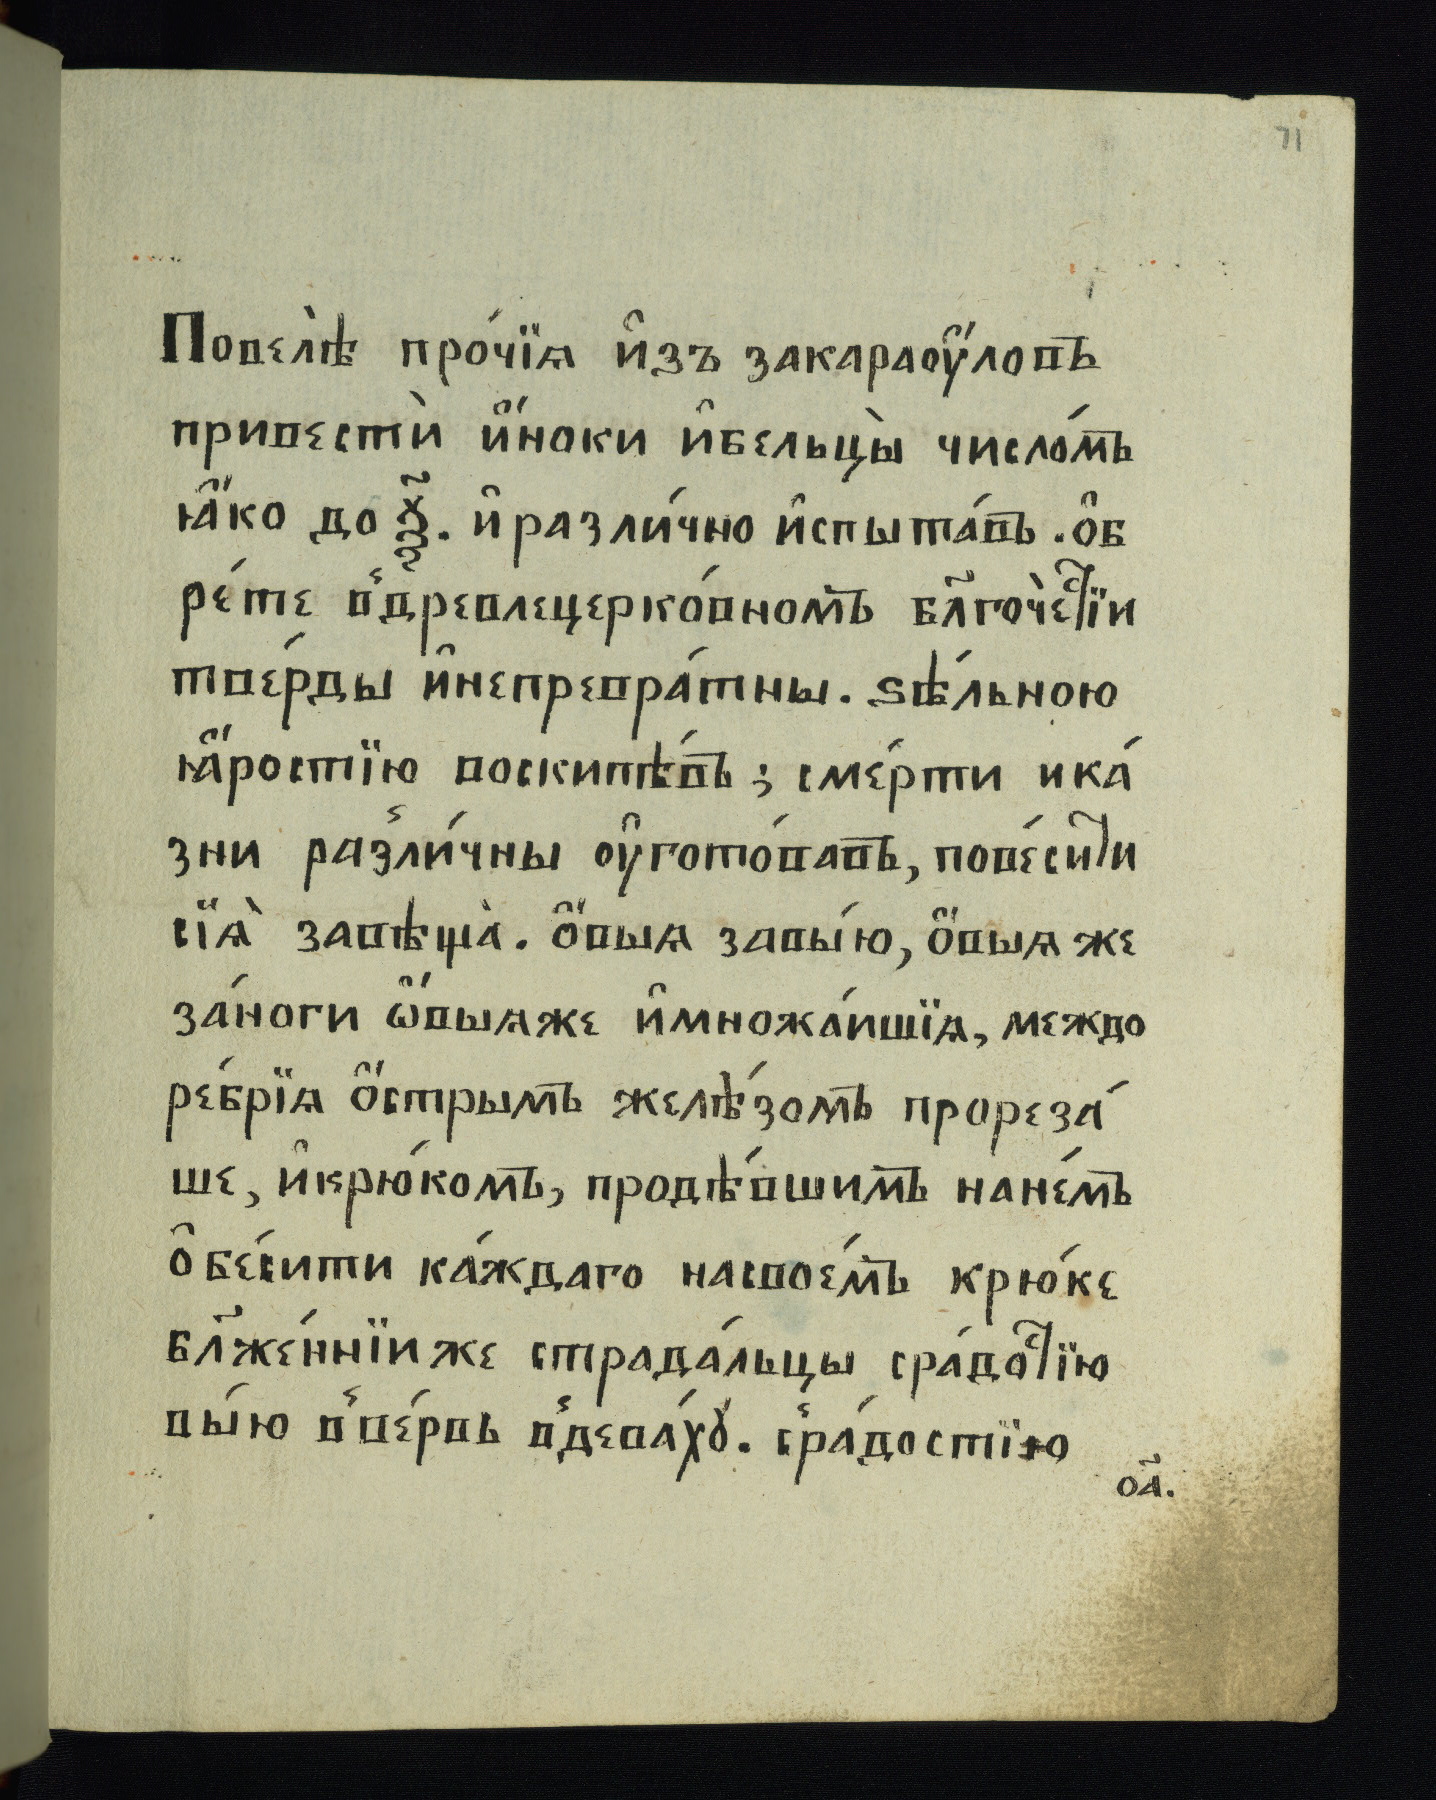 71
Повелѣ̀ про́чїѧ и҆зъ закараоу҆́ловъ
привестѝ и҆́ноки и҆бельцы̀ число́мъ
ꙗ҆́ко до ѯ҃. и҆ разли́чно и҆спыта́въ. о҆б
ре́те в̾древлецерко́вномъ бл҃гочѐстїи
тве́рды и҆непревра́тны. ѕѣ́льною
ꙗ҆́ростїю воскипѣ́въ; сме́рти и ка́
зни раз̾ли́чны оу҆гото́вавъ, пове́сити
сїѧ̀ завѣща̀. о҆́выѧ завы́ю, о҆́выѧ же
за́ноги ѡ҆́выѧже и҆множа́ишїѧ, междо
ре́брїѧ о҆́стрымъ желѣ́зомъ прореза́
ше, и҆крю́комъ, продѣ́вшимъ нане́мъ
о҆бе́сити ка́ждаго насвое́мъ крю́ке
бл҃же́ннїи же страда́льцы сра́достїю
вы́ю в̾ве́рвь в̾дева́хꙋ. с̾ра́достїю
о҃а.